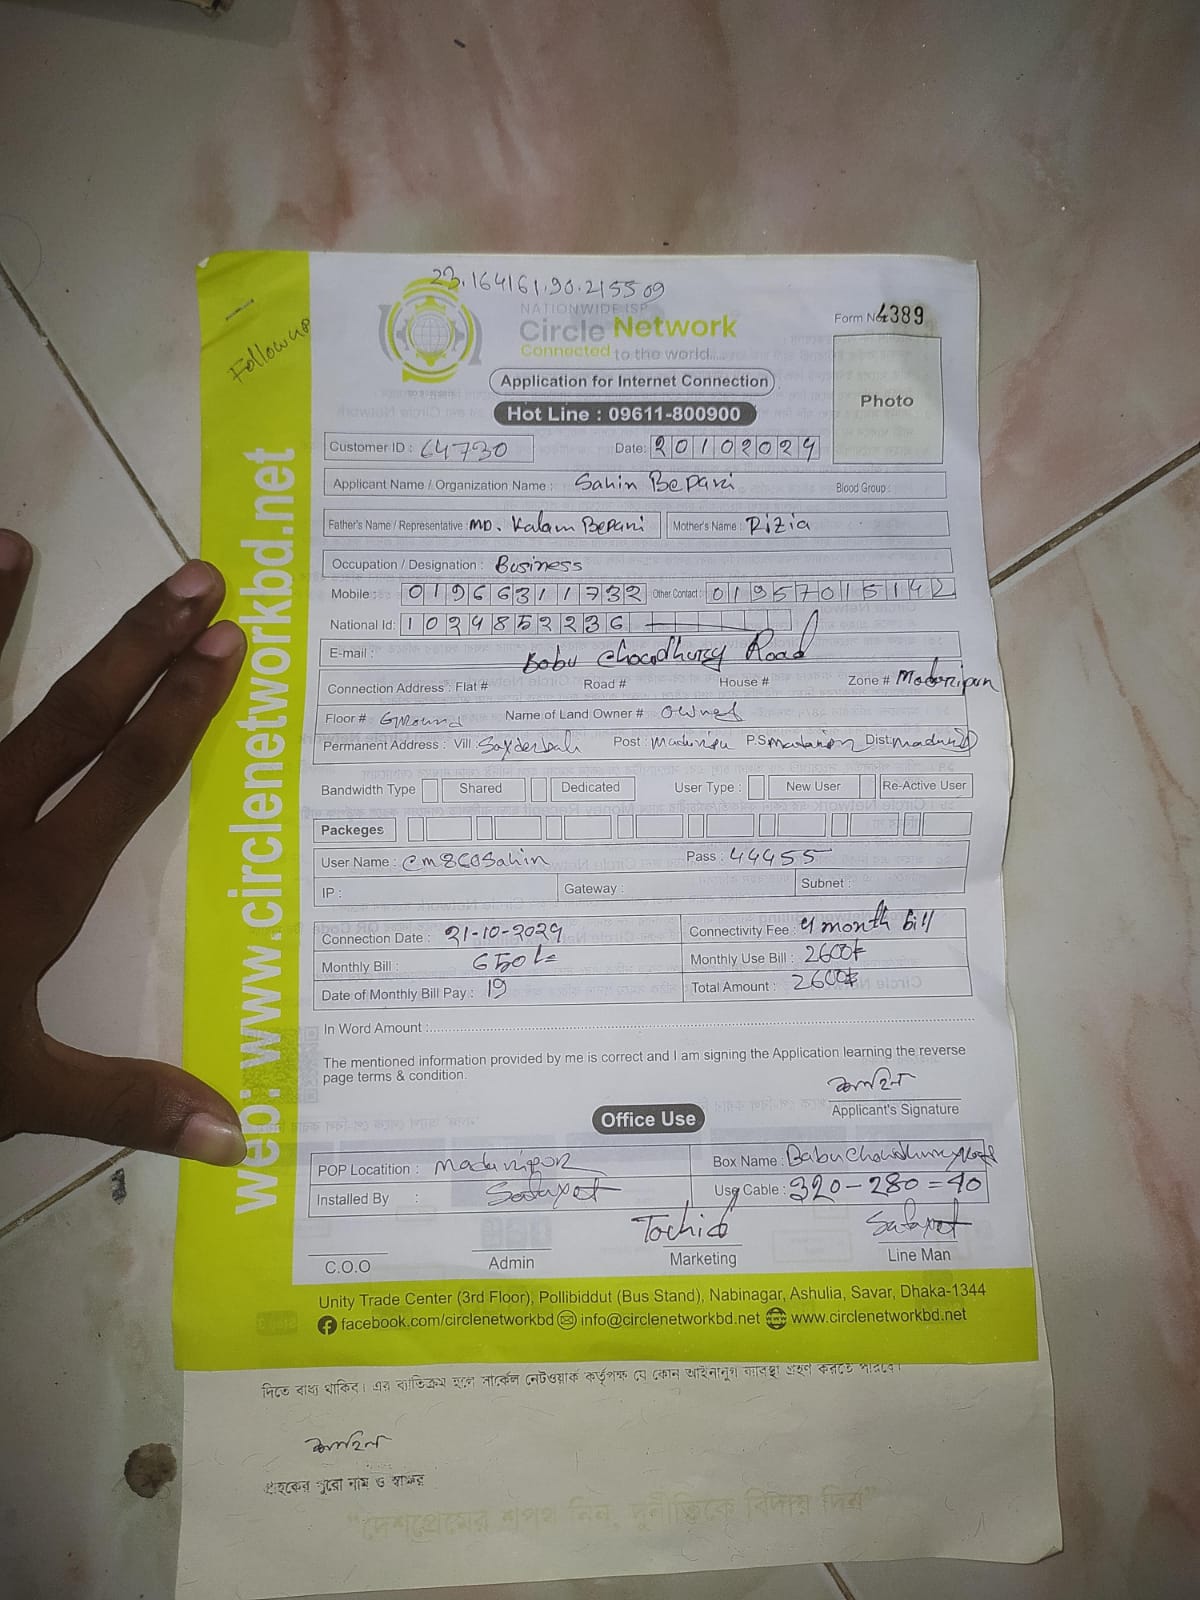 23.164161.90.215509
NATIONWIDE ISP
Circle Network
Connected to the world...
Form No: 4389
Followup
Photo
Application for Internet Connection
Hot Line : 09611-800900
Customer ID : 64730 Date: 20102024
Applicant Name / Organization Name : Sahin Bepari Blood Group :
Father's Name / Representative : MD. Kalam Bepari Mother's Name : Rizia
Occupation / Designation : Business
Mobile : 01966311732 Other Contact : 01957015142
National Id: 1024852236
E-mail :
Babu Chowdhury Road
Connection Address : Flat # Road # House # Zone # Madaripur
Floor # Ground Name of Land Owner # Owner
Permanent Address : Vill : Post : P.S Dist:
Bandwidth Type Shared Dedicated User Type : New User Re-Active User
Packeges
User Name : cm860sahin Pass : 44455
IP : Gateway : Subnet :
Connection Date : 21-10-2024 Connectivity Fee : 4 month bill
Monthly Bill : 650/= Monthly Use Bill : 2600
Date of Monthly Bill Pay : 19 Total Amount : 2600
In Word Amount :
The mentioned information provided by me is correct and I am signing the Application learning the reverse
page terms & condition.
Applicant's Signature
Office Use
POP Locatition : Madaripur Box Name : Babu Chowdhury
Installed By : Safayet Use Cable : 320-280=40
Tochid Safayet
C.O.O Admin Marketing Line Man
Unity Trade Center (3rd Floor), Pollibiddut (Bus Stand), Nabinagar, Ashulia, Savar, Dhaka-1344
facebook.com/circlenetworkbd info@circlenetworkbd.net www.circlenetworkbd.net
web: www.circlenetworkbd.net
দিতে বাধ্য থাকিব। এর ব্যতিক্রম হলে সার্কেল নেটওয়ার্ক কর্তৃপক্ষ যে কোন আইনানুগ ব্যবস্থা গ্রহণ করতে পারবে।
গ্রাহকের পুরো নাম ও স্বাক্ষর
"দেশপ্রেমের শপথ নিন, দুর্নীতিকে বিদায় দিন"